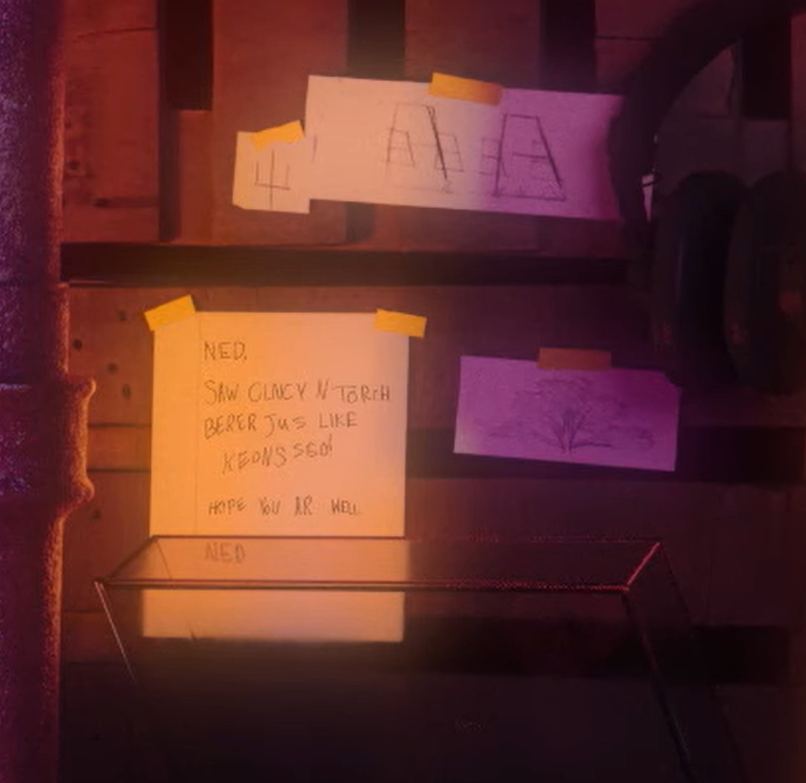 NED,
SAW CLNCY N TORCH
BERER JUS LIKE
KEONS SED!
HOPE YOU AR WELL
NED